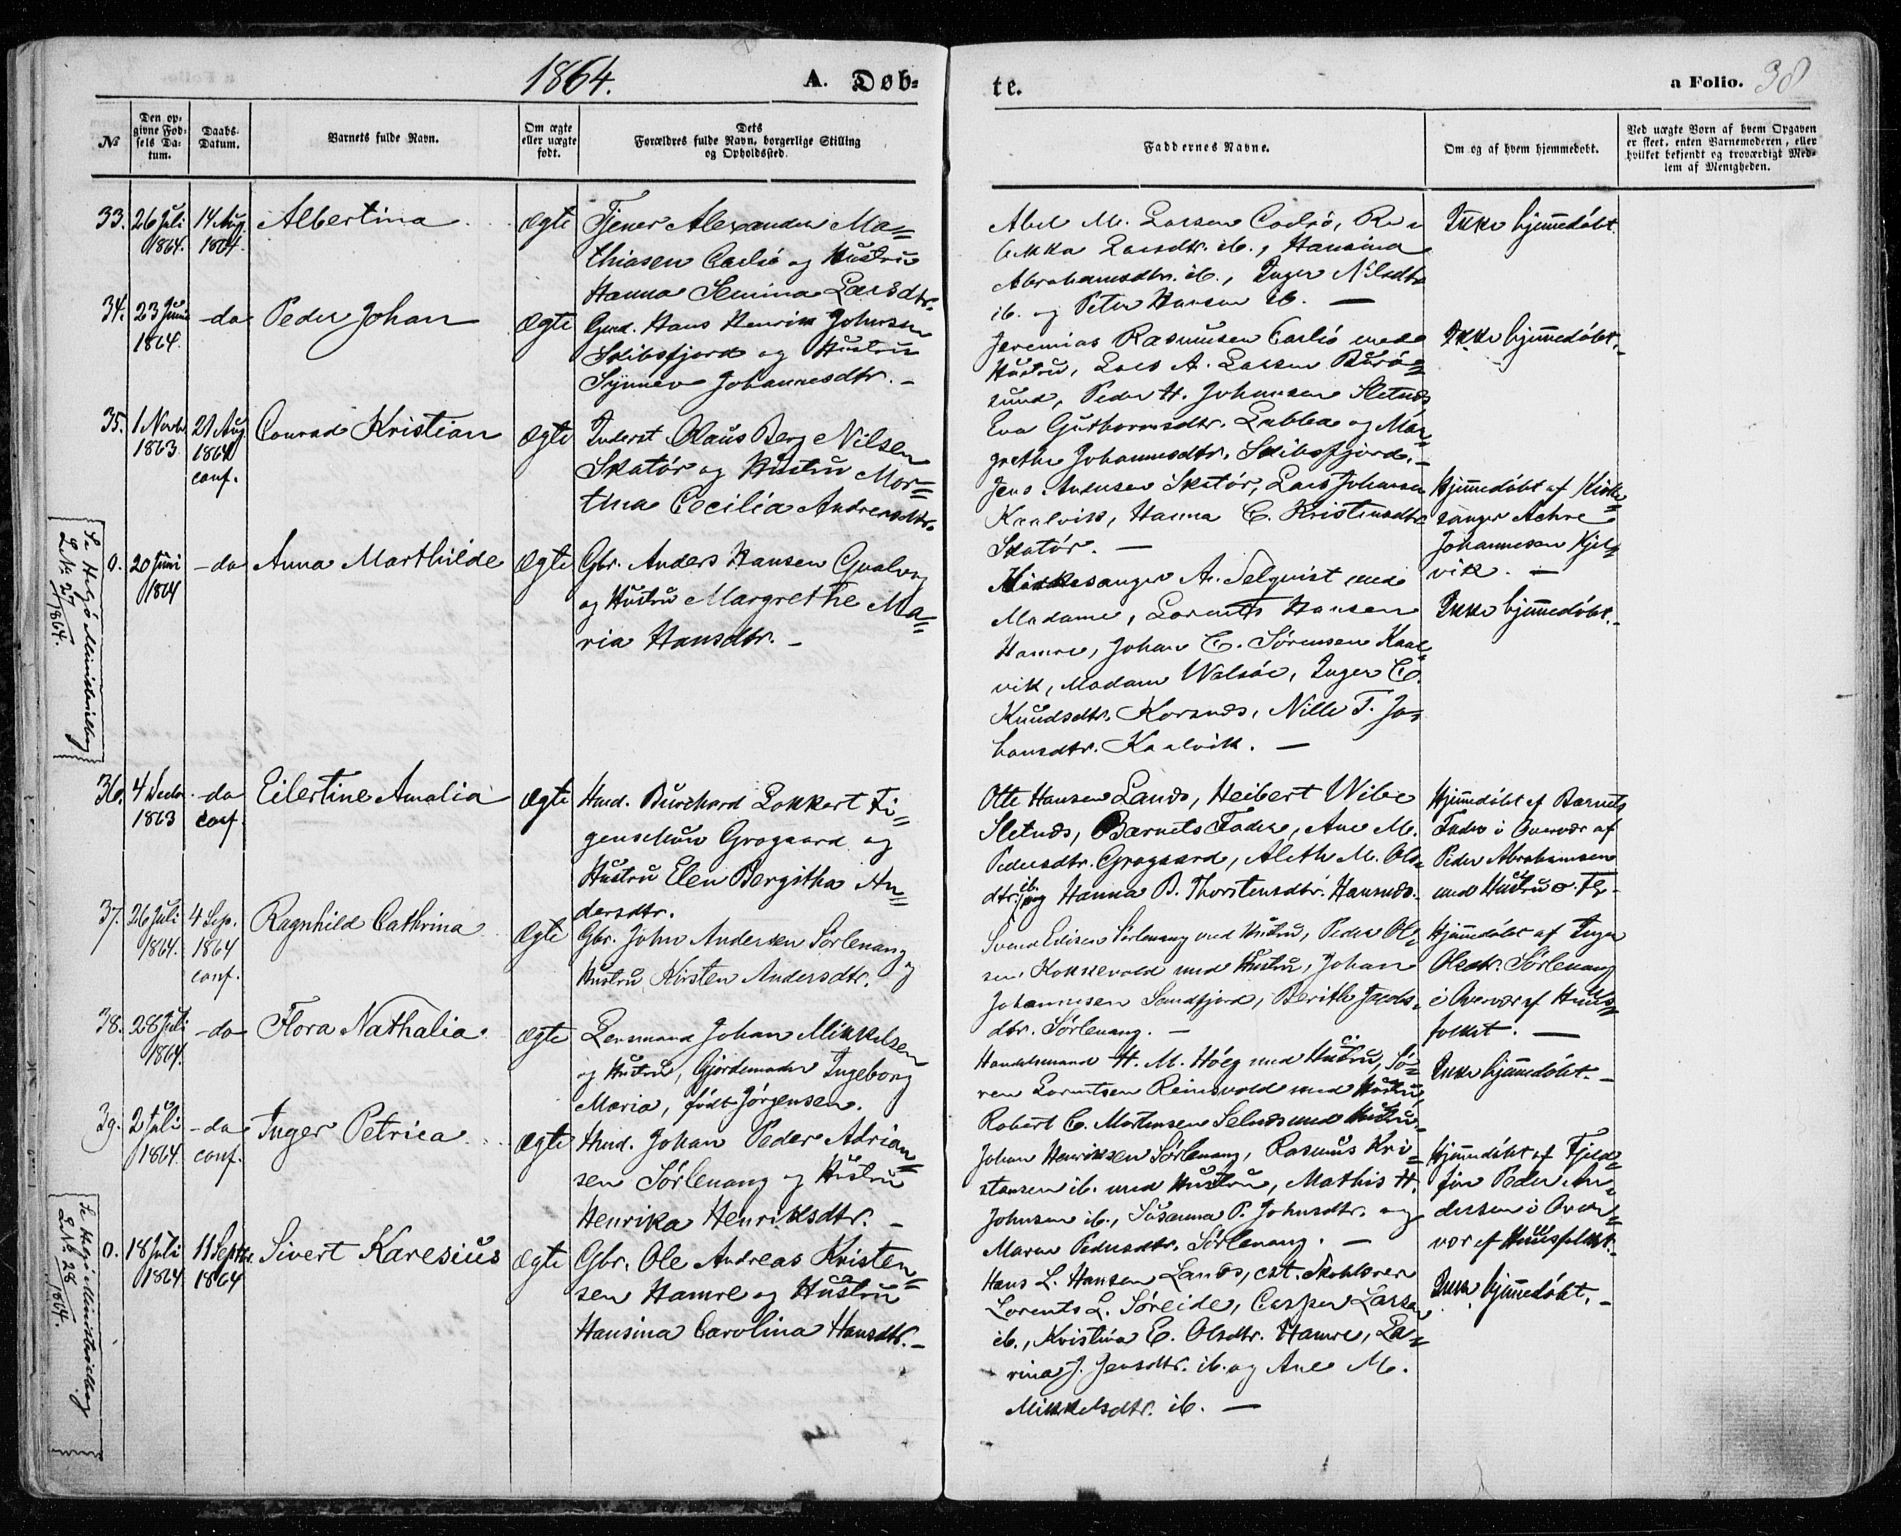 1864.
A. Døb-
te.
a Folio. 38
№
Den op-
givne Fød-
sels Da-
tum.
Daabs-
Datum.
Barnets fulde Navn.
Om ægte
eller uægte
født.
Dets
Forældres fulde Navn, borgerlige Stilling
og Opholdssted.
Faddernes Navne.
Om og af hvem hjemmedøbt.
Ved uægte Børn af hvem Opgaven
er skeet, enten Barnemoderen, eller
hvilket bekjendt og troværdigt Med-
lem af Menigheden.
33. 26 Juli 1864. 14 Aug. 1864. Albertina ægte
Tjener Alexander Ma=
thiasen Carlsö og Hustru
Hanna Semina Larsdtr.
Abel M. Larsen Carlsö, Re
bekka Larsdtr. ib., Hansina
Abrahamsdtr. ib., Inger Nilsdtr.
ib. og Peter Hansen ib. —
Ikke hjemmedöbt.
34. 23 Juni 1864. -do Peder Johan ægte
Gmd. Hans Henrik Johnsen
Skibsfjord og Hustru
Synnev Johannesdtr. -
Jeremias Rasmusen Carlsö med
Hustru, Lars A. Larsen Burö=
sund, Peder H. Johansen Sletnæs
Eva Guthormsdtr. Lubben og Mar=
grethe Johannesdtr. Skibsfjord. -
Ikke hjemmedöbt. -
35. 1 Novbr. 1863. 21 Aug. 1864 conf. Conrad Kristian ægte
Inderst Olaus Berg Nilsen
Skatör og Hustru Mor=
tina Cecilia Andreasdtr.
Jens Andersen Skatör, Lars Johansen
Kaalvik, Hanna C. Kristensdtr.
Skatör. —
Hjemmedöbt af Kirke
sanger Achre
Johannesen Kjel=
vik. —
0. 20 Juni 1864 -do Anna Marthilde ægte
Gbr. Anders Hansen Gvalvog
og Hustru Margrethe Ma=
ria Hansdtr. -
Kirkesanger A. Selqvist med
Madame, Lorents Hansen
Hamre, Johan C. Sörensen Kaal=
vik, Madam Walsöe, Inger C.
Knudsdtr. Korsnæs, Nille T. Jo=
hansdtr. Kaalvik. —
Ikke hjemmedöbt. -
Se Helgö Ministerialbog
L. № 27/1864.
36. 4 Decbr. 1863 -do conf. Eilertine Amalia ægte
Hmd. Burchard Lokkert Fi=
genschou Grogaard og
Hustru Elen Bergitha An=
dersdtr.
Otte Hansen Lanæs, Heibert Wibe
Sletnæs, Barnets Fader, Ane M.
Pedersdtr. Grogaard, Aleth M. Ols=
dtr. ib. og Hanna B. Thorstensdtr. Hansnæs.
Hjemmedöbt af Barnets
Fader i Overvær af
Peder Abrahamsen
med Hustru o. Fl. -
37. 26 Juli 1864. 4 Sep. 1864 conf. Ragnhild Cathrina ægte
Gbr. John Andersen Sörlenang og
Hustru Kirsten Andersdtr.
Svend Edisen Sörlenang med Hustru, Peder Ol=
sen Kokkevold med Hustru, Johan
Johannesen Sandfjord, Berith Jacobs=
dtr. Sörlenang. —
Hjemmedöbt af Inger
Olsdtr. Sörlenang
i Overvær af Huus=
folket. —
38. 28 Juli 1864. -do Flora Nathalia. ægte
Lensmand Johan Mikkelsen
og Hustru, Gjordemoder Ingeborg
Maria, født Jørgensen.
Handelsmand H. M. Höeg med Hustru, Sö=
ren Lorntsen Reinsvold med Hustru,
Robert C. Mortensen Selnæs med Hustru. -
Ikke hjemmedöbt. -
39. 2 Juli 1864. -do conf. Inger Petrica. ægte
Hmd. Johan Peder Adrian=
sen Sörlenang og Hustru
Henrika Henriksdtr. -
Johan Henriksen Sörlenang, Rasmus Kri=
stansen ib. med Hustru, Mathis H.
Johnsen ib., Susanna P. Johnsdtr. og
Maren Pedersdtr. Sörlenang. —
Hjemmedöbt af Fjeld=
fin Peder An=
dersen i Over=
vær af Huusfolket.
0. 18 Juli 1864 11 Septbr. 1864 Sivert Karesius ægte
Gbr. Ole Andreas Kristen=
sen Hamre og Hustru
Hansina Carolina Hansdtr. -
Hans L. Hansen Lanæs, cst. Skolelærer
Lorents L. Söreide, Casper Larsen
ib., Kristina E. Olsdtr. Hamre, La=
rina J. Jensdtr. ib. og Ane M.
Mikkelsdtr. ib. —
Ikke hjemmedöbt. -
Se Helgö Ministerialbog
L. № 28/1864.